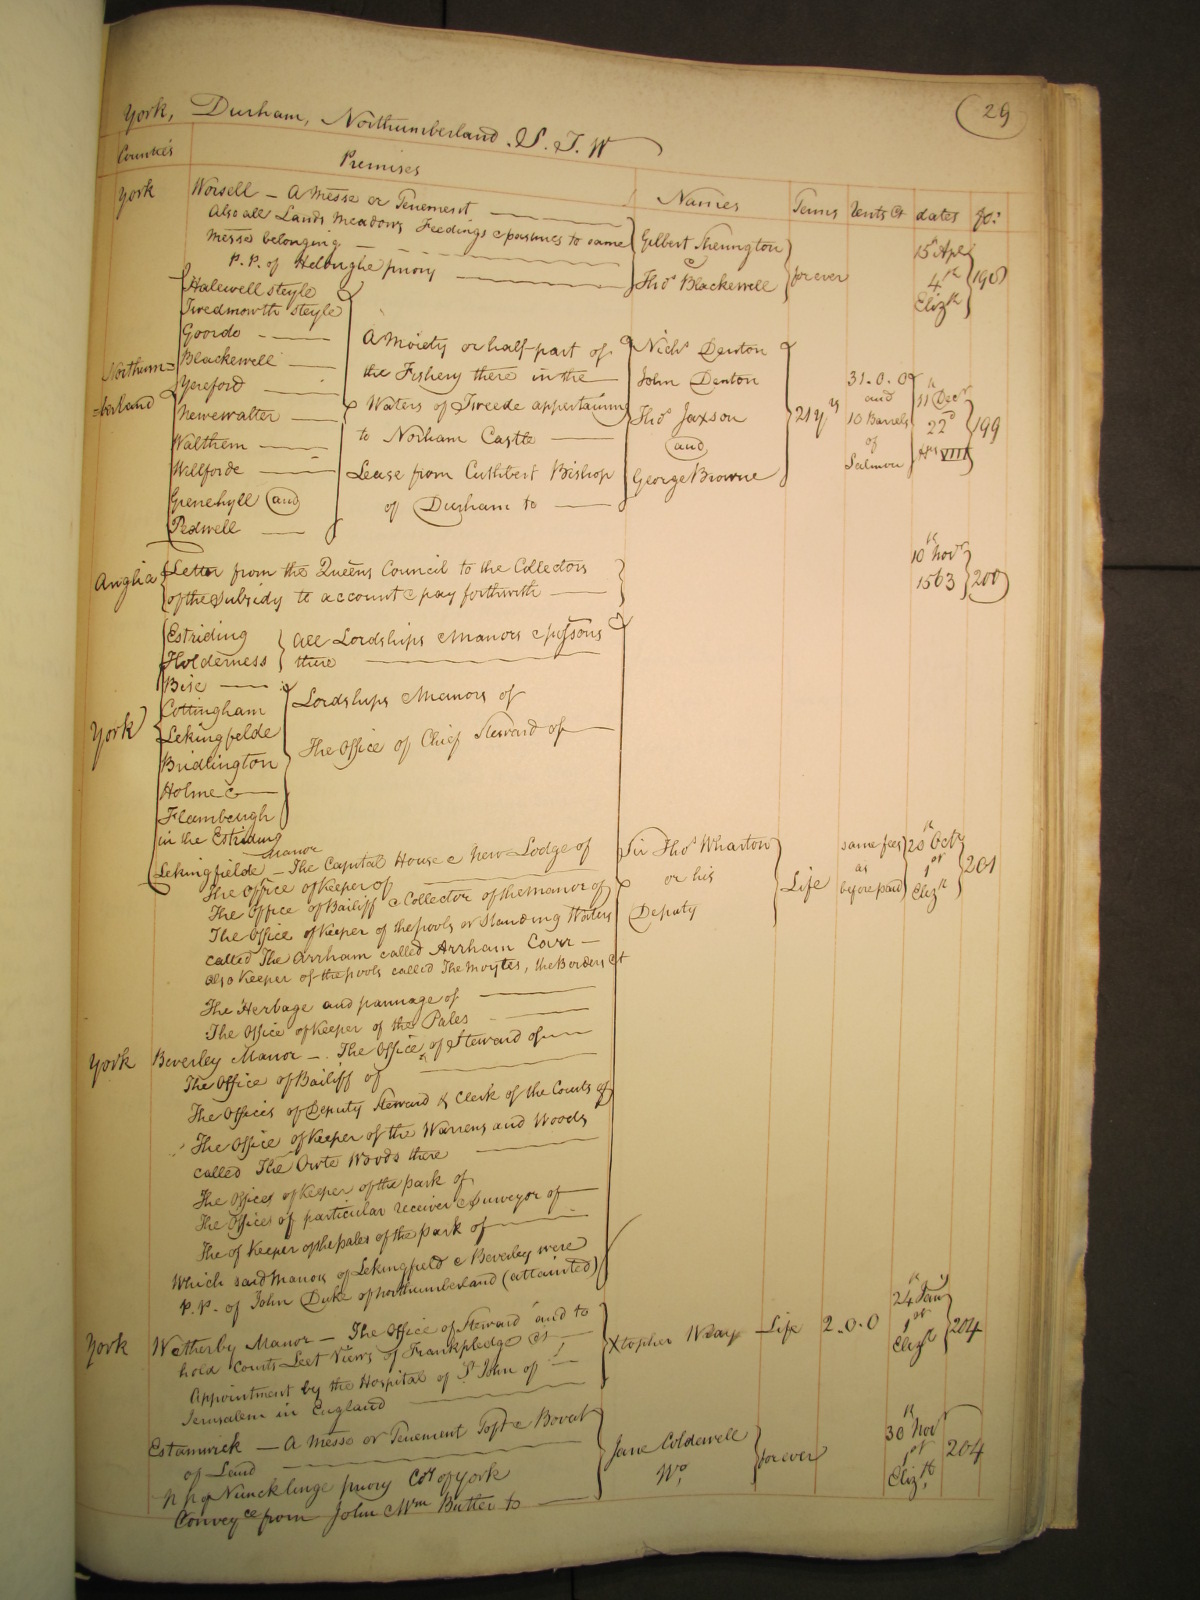 29
York, Durham, Northumberland. S. T. W
Counties Premises Names Terms Rents &c dates fo:
York Worsell — A Messe or Tenement
Also all Lands Meadows Feedings & pastures to same
Messe belonging
P. P. of Helaughe priory
Gilbert Sherington
&
Thos Blackewell
forever
15th Apl
4th
Elizth
198
Northum=
=berland
Halewell steyle
Twedmowth steyle
Goordo
Blackewell
Yereford
Newewalter
Walthem
Willforde
Grenehyll and
Pedwell
A Moiety or half part of
the Fishery there in the
Waters of Tweede appertaining
to Norham Castle
Lease from Cuthbert Bishop
of Durham to
Nichs Denton
John Denton
Thos Jaxson
and
George Browne
21 Yrs
31.0.0
and
10 Barrels
of
Salmon
11th Decr
22d
Hy VIII
199
Anglia Letter from the Queens Council to the Collectors
of the Subsidy to account & pay forthwith
10th Novr
1563
200
York
Estriding
Holderness
All Lordships & Manors & possons
there
Bise
Cottingham
Lekingfelde
Bridlington
Holme &
Flambeugh
in the Estriding
Lordships & Manors of
The Office of Chief Steward of
Manor
Lekingfielde — The Capital House & New Lodge of
The Office of Keeper of
The Office of Bailiff & Collector of the Manor of
The Office of Keeper of the pools or Standing Waters
called The Arrham called Arrham Carr —
also Keeper of the pools called The Moytes, the Borders &c
The Herbage and pannage of
The Office of Keeper of the Pales
Sir Thos Wharton
or his
Deputy
Life
same fees
as
before paid
20th Octr
1st
Elizth
201
York Beverley Manor — The Office of Steward of
The Office of Bailiff of
The Offices of Deputy Steward & Clerk of the Courts of
The Office of Keeper of the Warrens and Woods
called The Owte Woods there
The Offices of Keeper of the park of
The Offices of particular receiver & Surveyor of
The of Keeper of the pales of the park of
Which said Manors of Lekingfield & Beverley were
P. P. of John Duke of Northumberland (attainted)
York Wetherby Manor — The Office of Steward and to
hold Courts Leet Views of Frankpledge &c
Appointment by the Hospital of St John of
Jerusalem in England
Xtopher Wray
Life
2.0.0
24th Jany
1st
Elizth
204
Estanwick — A Messe or Tenement Toft & Bovat
of Land
p p of Nuncklinge priory Coy of York
Conveyce from John & Wm Butler to
Jane Coldewell
Wo
forever
30th Nov
1st
Elizth
204